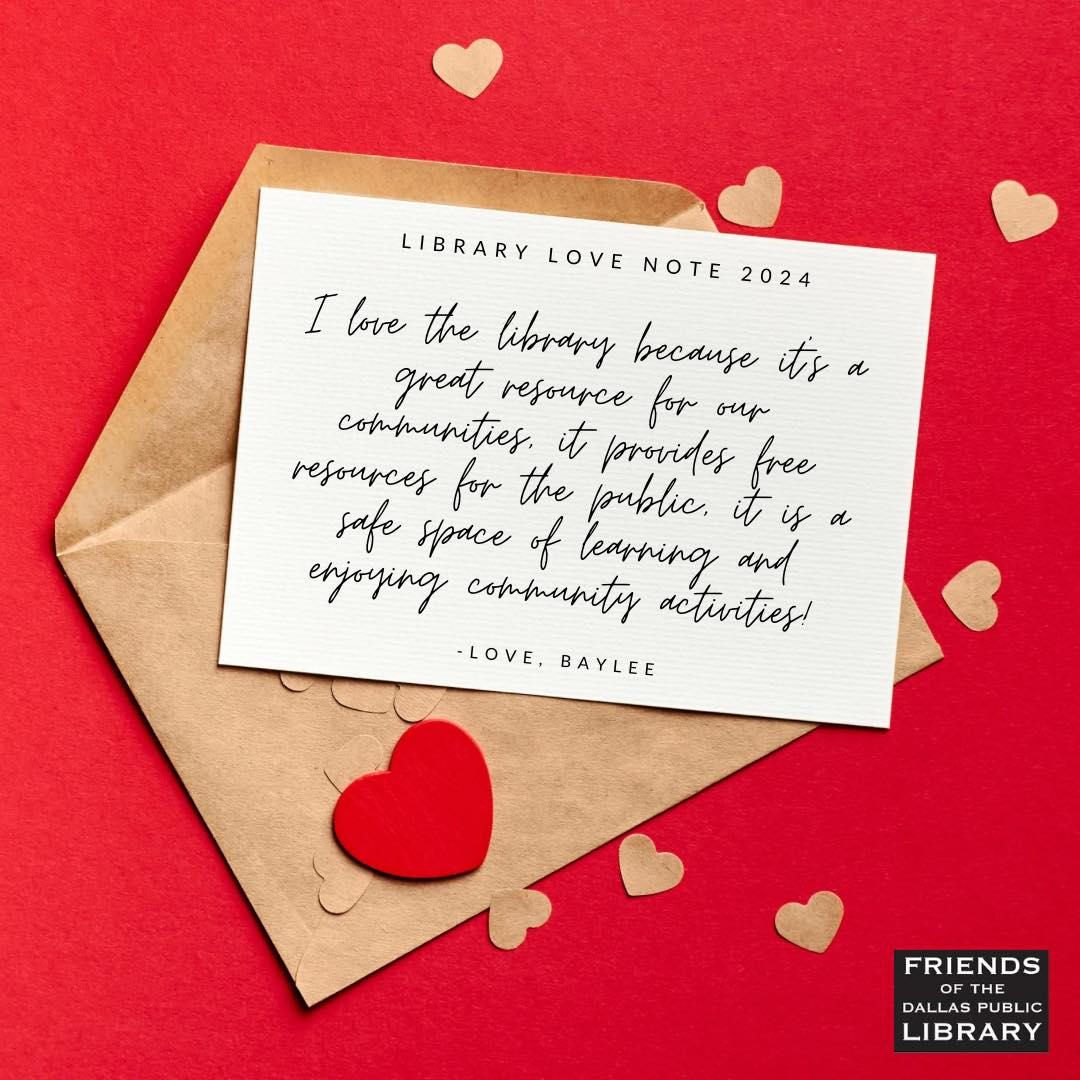 LIBRARY LOVE NOTE 2024
I love the library because it's a
great resource for our
communities, it provides free
resources for the public, it is a
safe space of learning and
enjoying community activities!
-LOVE, BAYLEE
FRIENDS
OF THE
DALLAS PUBLIC
LIBRARY